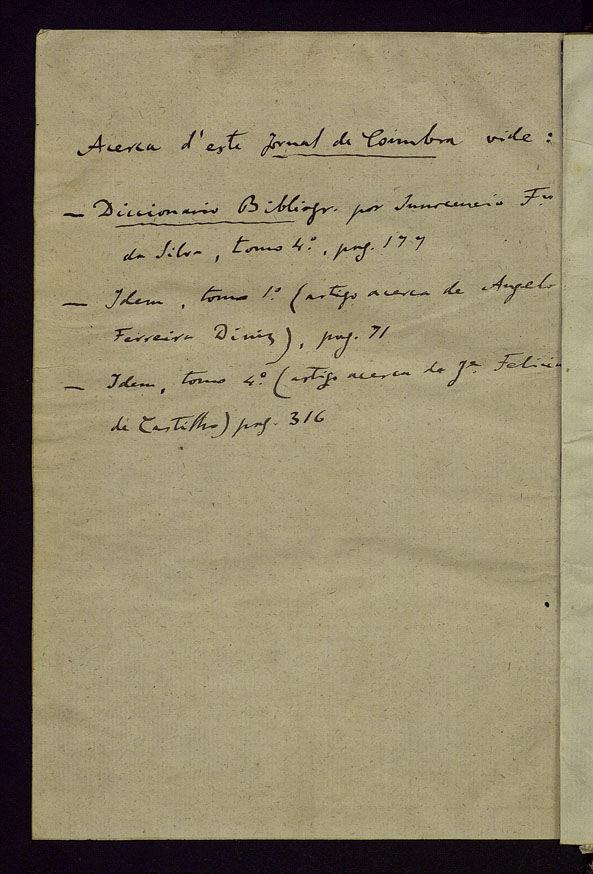 Acerca d'este Jornal de Coimbra vide:
— Diccionario Bibliogr. por Innocencio Fco
da Silva, tomo 4.º, pag. 177
— Idem, tomo 1.º (artigo acerca de Angelo
Ferreira Diniz), pag. 71
— Idem, tomo 4.º (artigo acerca de Je. Felicia
de Castilho) pag. 316